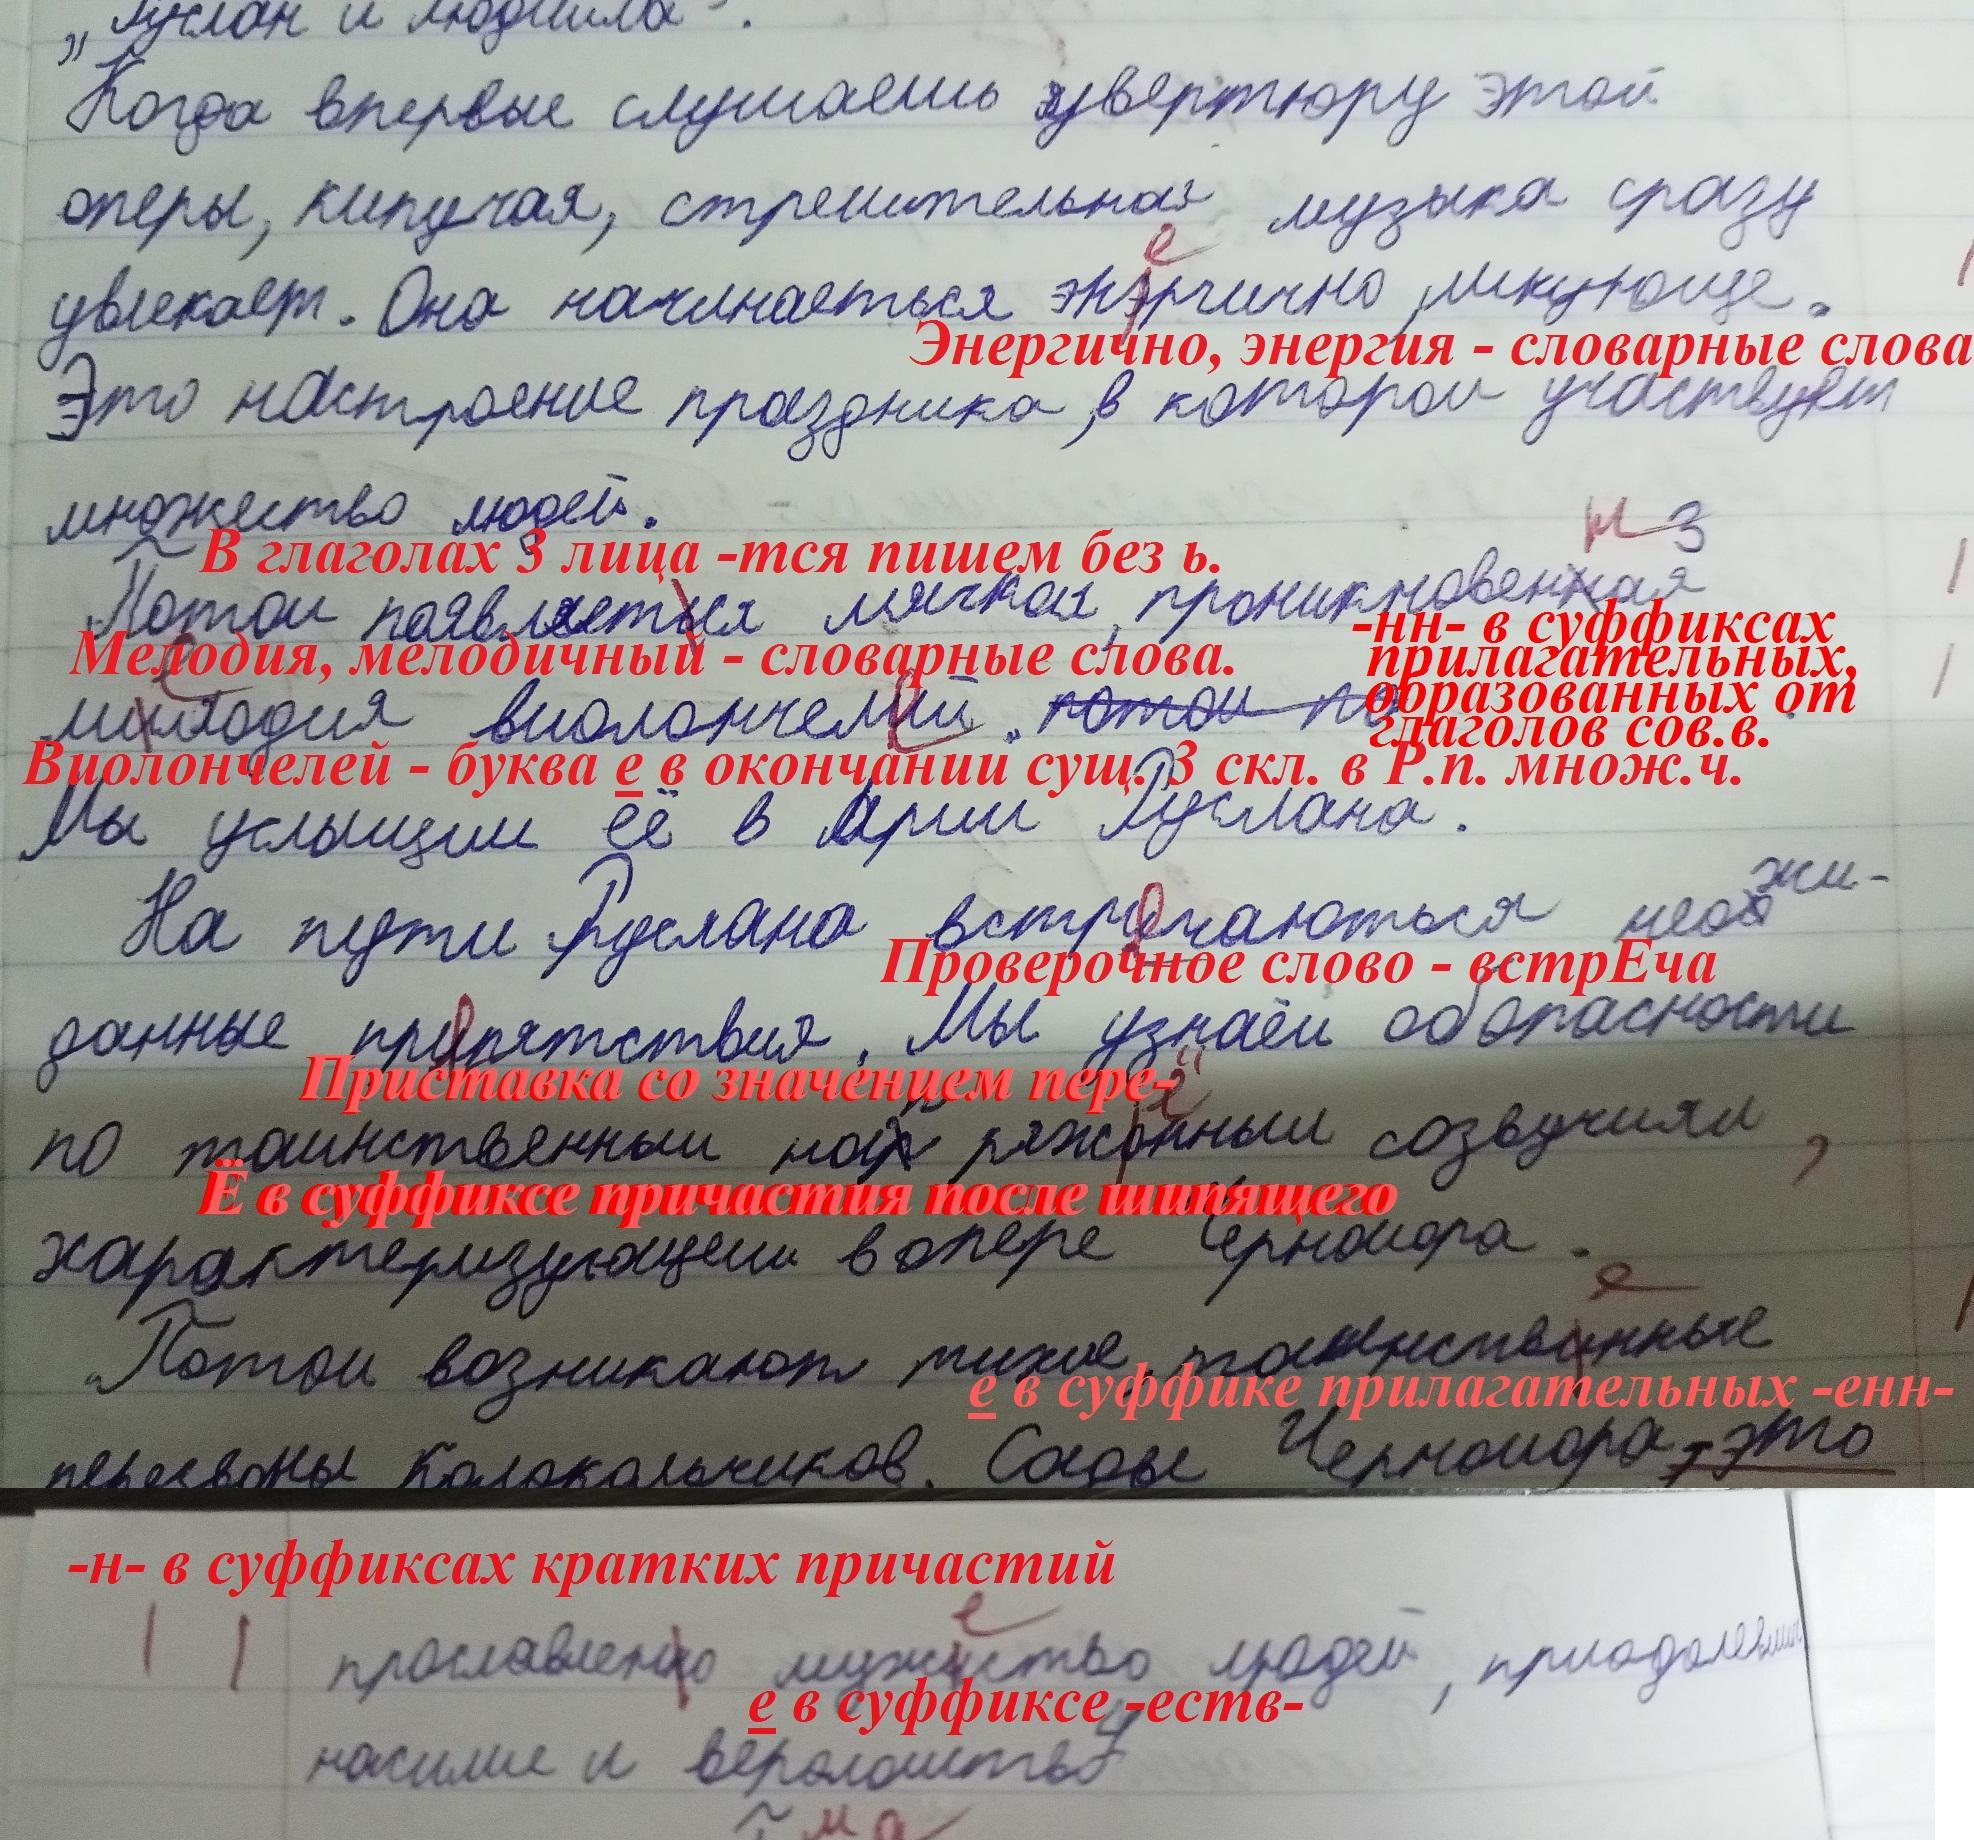 „Руслан и Людмила".
Когда впервые слушаешь увертюру этой
оперы, кипучая, стремительная музыка сразу
е
увлекает. Она начинаеться энэргично, ликующе.
Энергично, энергия - словарные слова
Это настроение праздника, в котором участвует
множество людей.
н 3
В глаголах 3 лица -тся пишем без ь.
Потом появляеться мягкая, проникновенная
-нн- в суффиксах
прилагательных,
образованных от
глаголов сов.в.
Мелодия, мелодичный - словарные слова.
е
милодия виолончелий. потом по
Виолончелей - буква е в окончании сущ. 3 скл. в Р.п. множ.ч.
Мы услышим её в Арии Руслана.
жи-
На пути Руслана встричаються нео
Проверочное слово - встрЕча
данные припятствия. Мы узнаём об опасности
Приставка со значением пере-
п "ё"
по таинственным на ряжонным созвучиям,
Ё в суффиксе причастия после шипящего
характеризующем в опере Черномора.
е
Потом возникают тихие, таинствинные
е в суффике прилагательных -енн-
перезвоны колокольчиков. Сады Черномора, это
-н- в суффиксах кратких причастий
е
прославленно мужиство людей, приодолевших
е в суффиксе -еств-
насилие и вероломство
м а